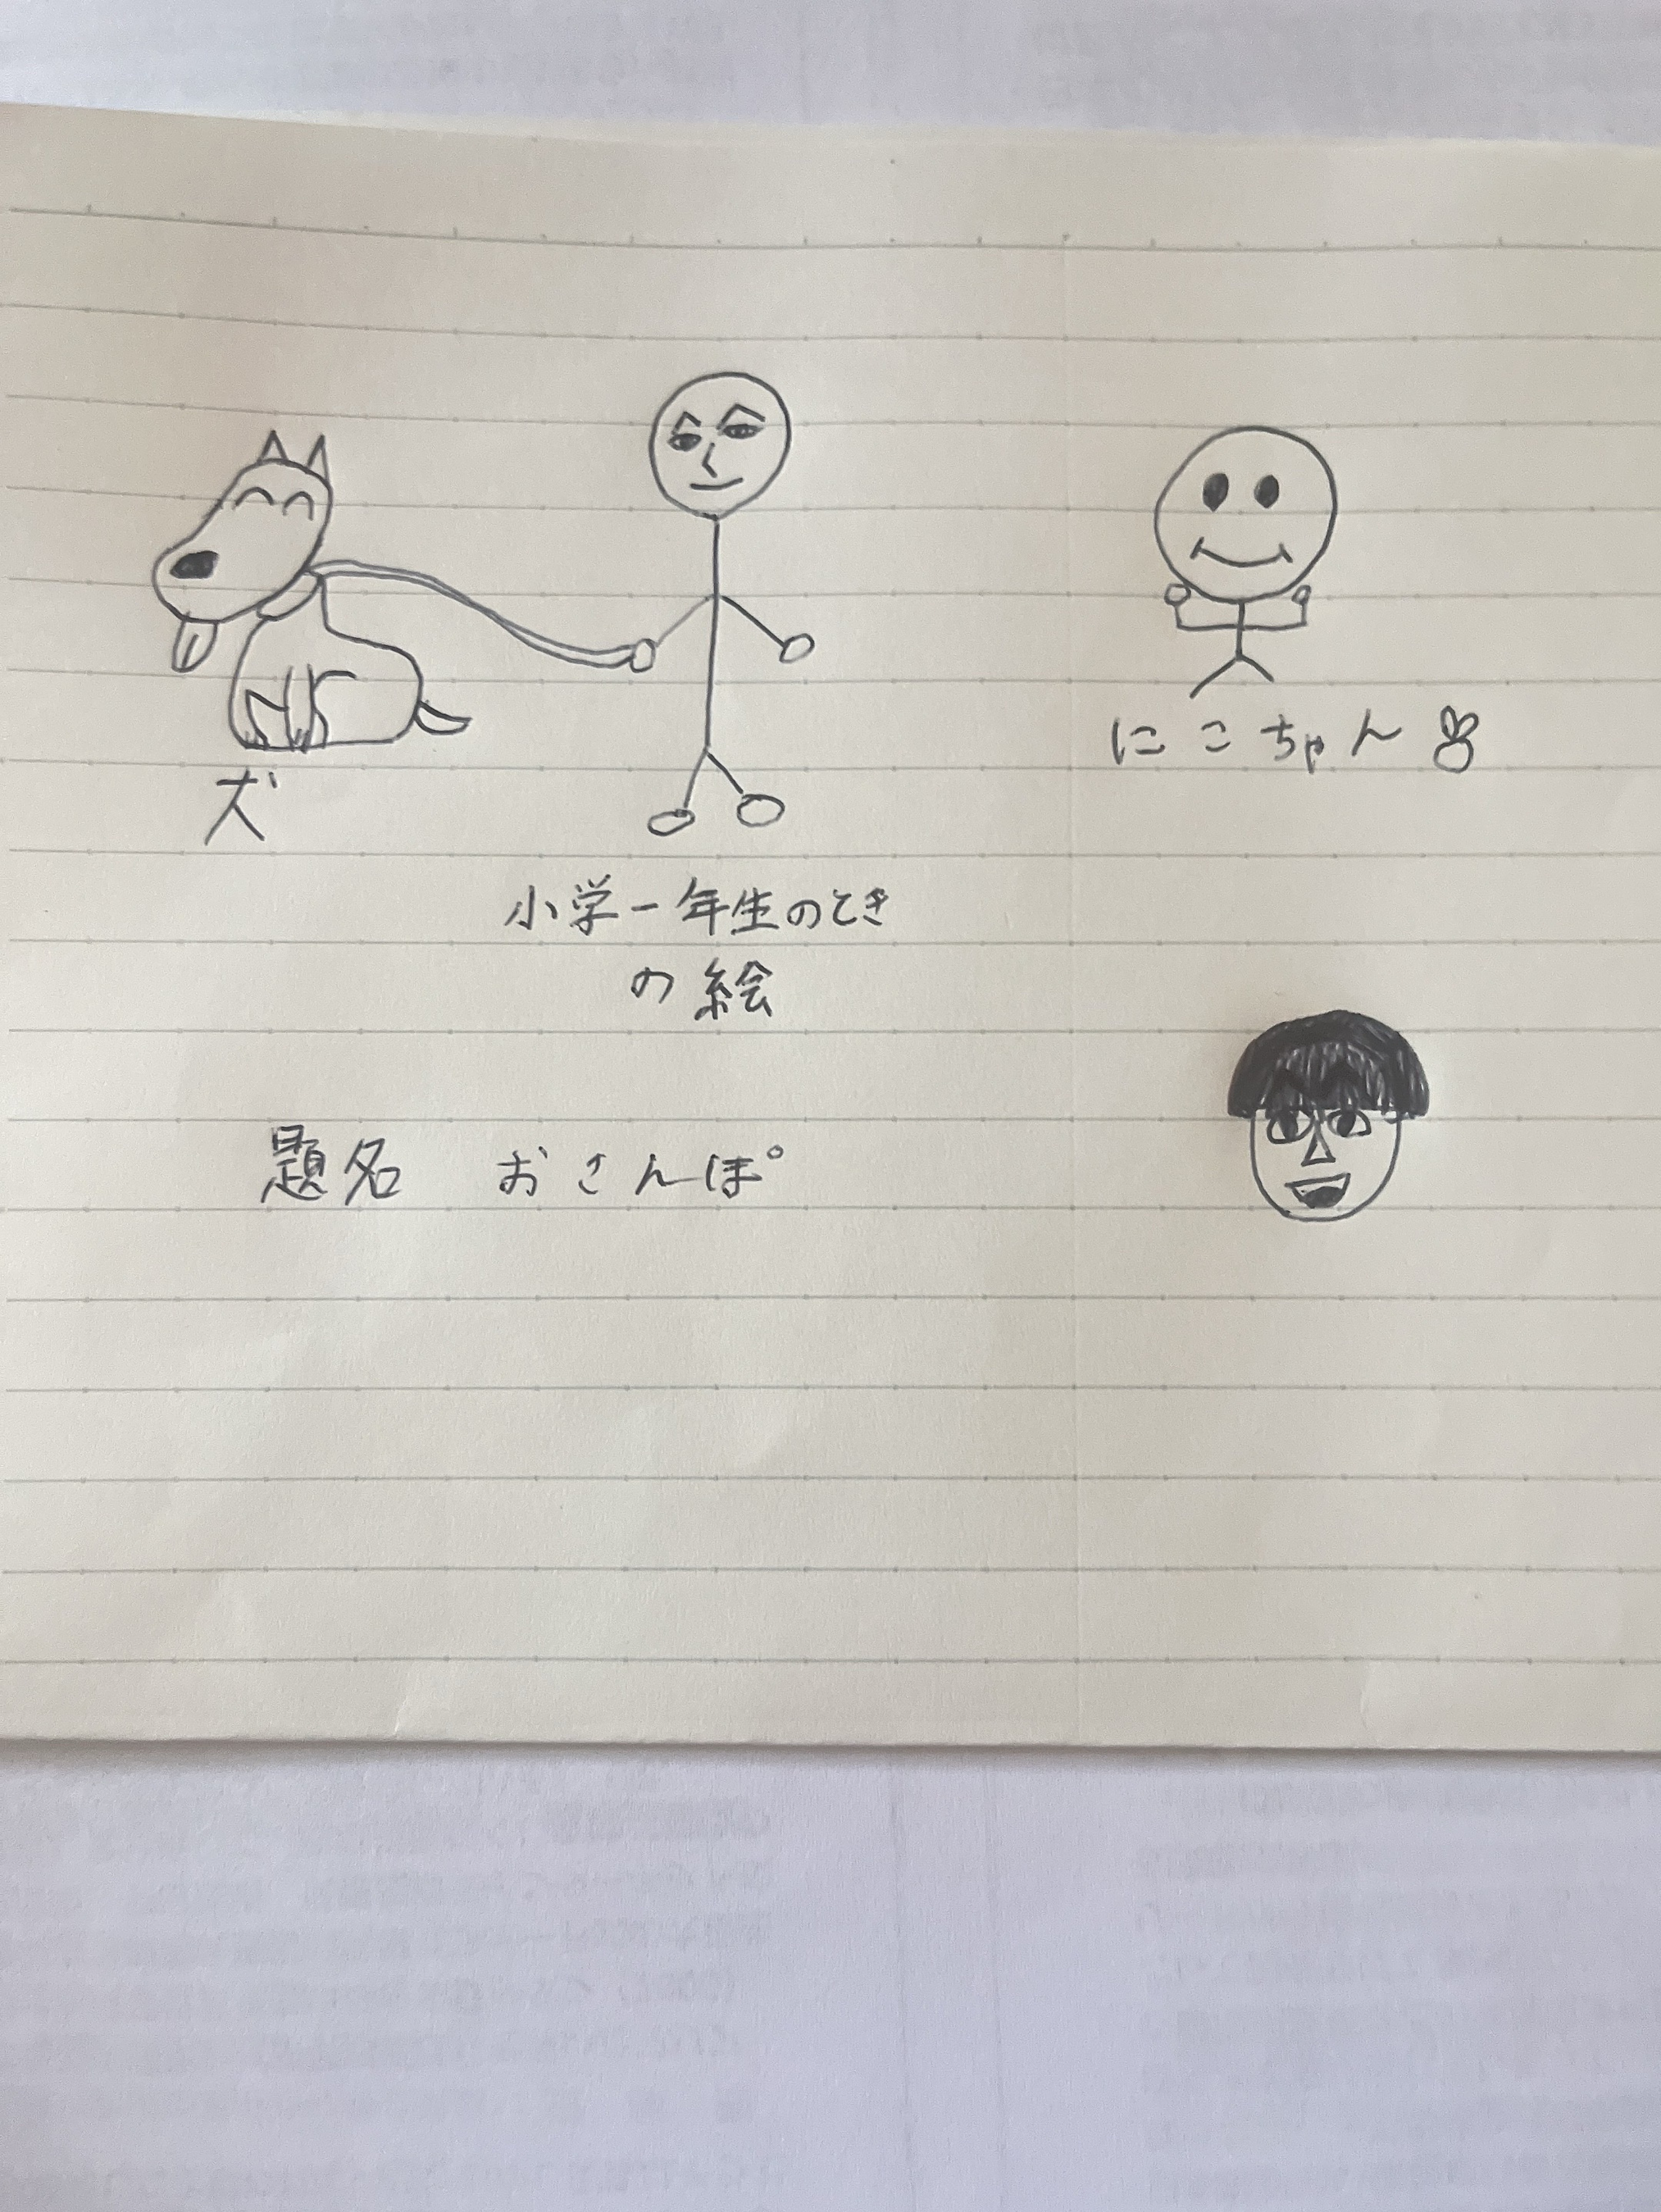 犬
にこちゃん
小学一年生のとき
の絵
題名 おさんぽ